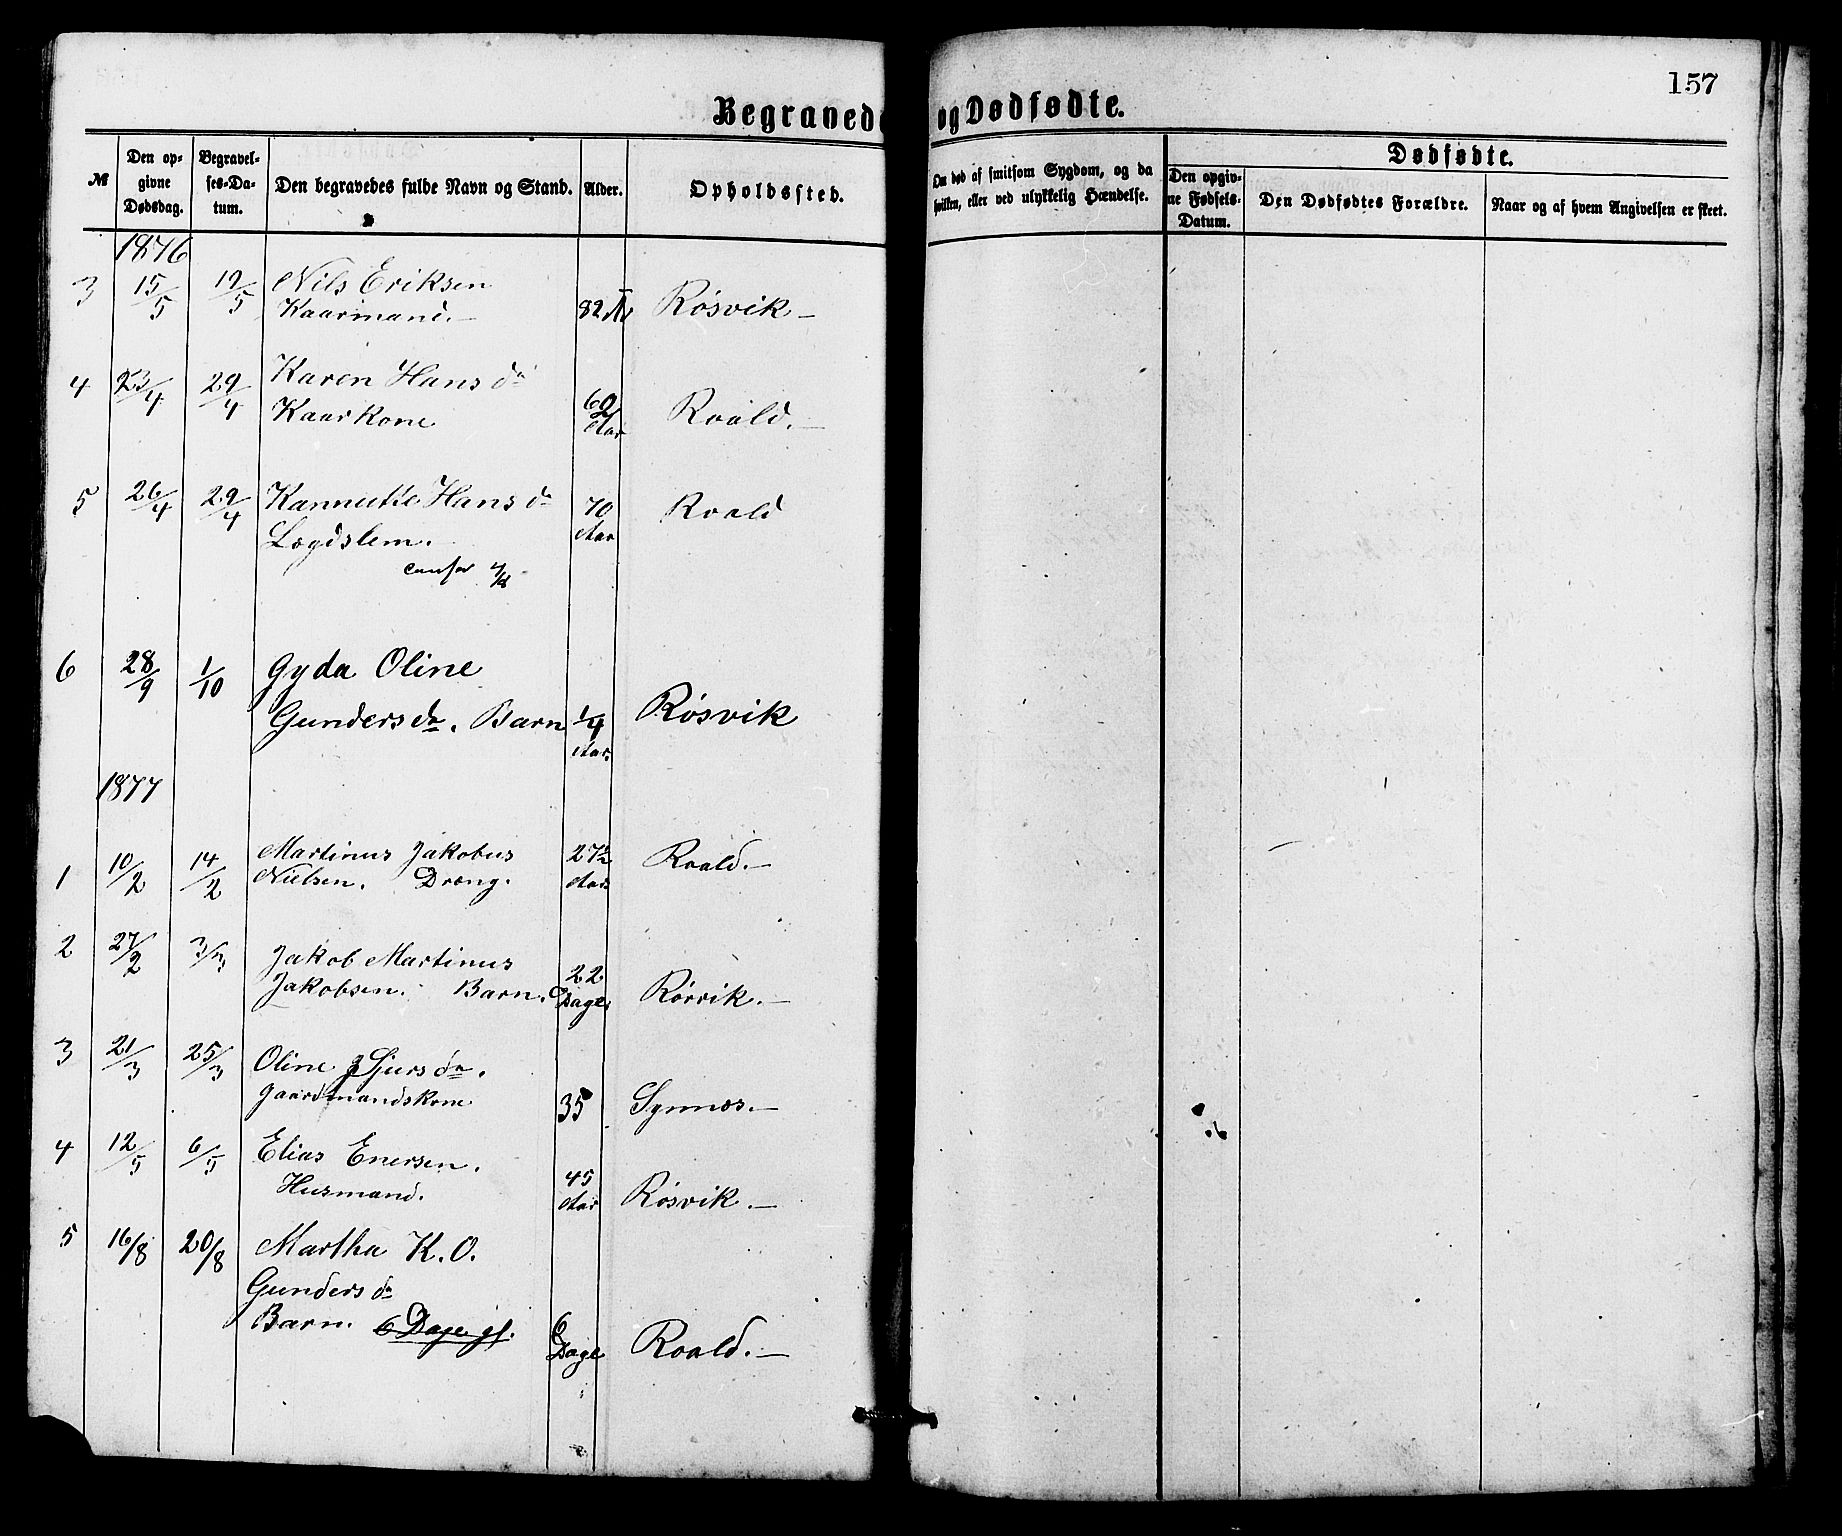 157
Begravede og Dødfødte.
№
Den opgivne Dødsdag.
Begravelses-Datum.
Den begravedes fulde Navn og Stand.
Alder.
Opholdssted.
Om død af smitsom Sygdom, og da hvilken, eller ved ulykkelig Hændelse.
Dødfødte.
Den opgivne Fødsels-Datum.
Den Dødfødtes Forældre.
Naar og af hvem Angivelsen er skeet.
1876
3 15/5 19/5 Nils Eriksen
Kaarmand. 82 Røsvik
4 23/4 29/4 Karen Hansda
Kaarkone 62 Aar Roald.
5 26/4 29/4 Hansda
Lægdslem. 70 Aar Roald
6 28/9 1/10 Gyda Oline
Gundersda. Barn 1/4 Aar. Røsvik
1877
1 10/2 14/2 Martinus Jakobus
Nielsen. Dræng. 27 Aar Roald.
2 27/2 3/3 Jakob Martinus
Jakobsen. Barn. 22 Dage. Rørvik.
3 21/3 25/3 Oline Sjursda.
Gaardmandskone 35 Synnæs.
4 12/5 6/5 Elias Enersen.
Husmand. 45 Aar Røsvik.
5 16/8 20/8 Martha K. O.
Gundersda
Barn. 6 Dage gl. 6 Dage Roald.